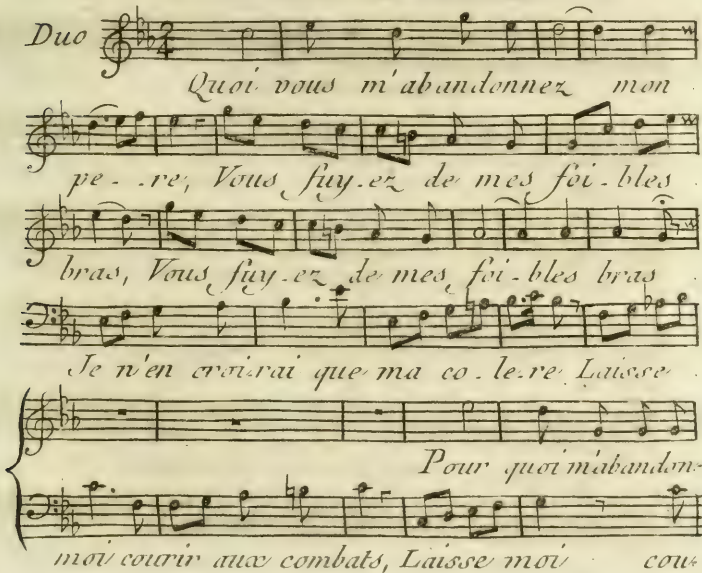 Duo
Quoi vous m'abandonnez mon
pe-.re, Vous fuy-ez de mes foi-bles
bras, Vous fuy-ez de mes foi-bles bras
Je n'en croirai que ma co-le-re Laisse
Pour quoi m'abandon-
moi courir aux combats, Laisse moi cou-